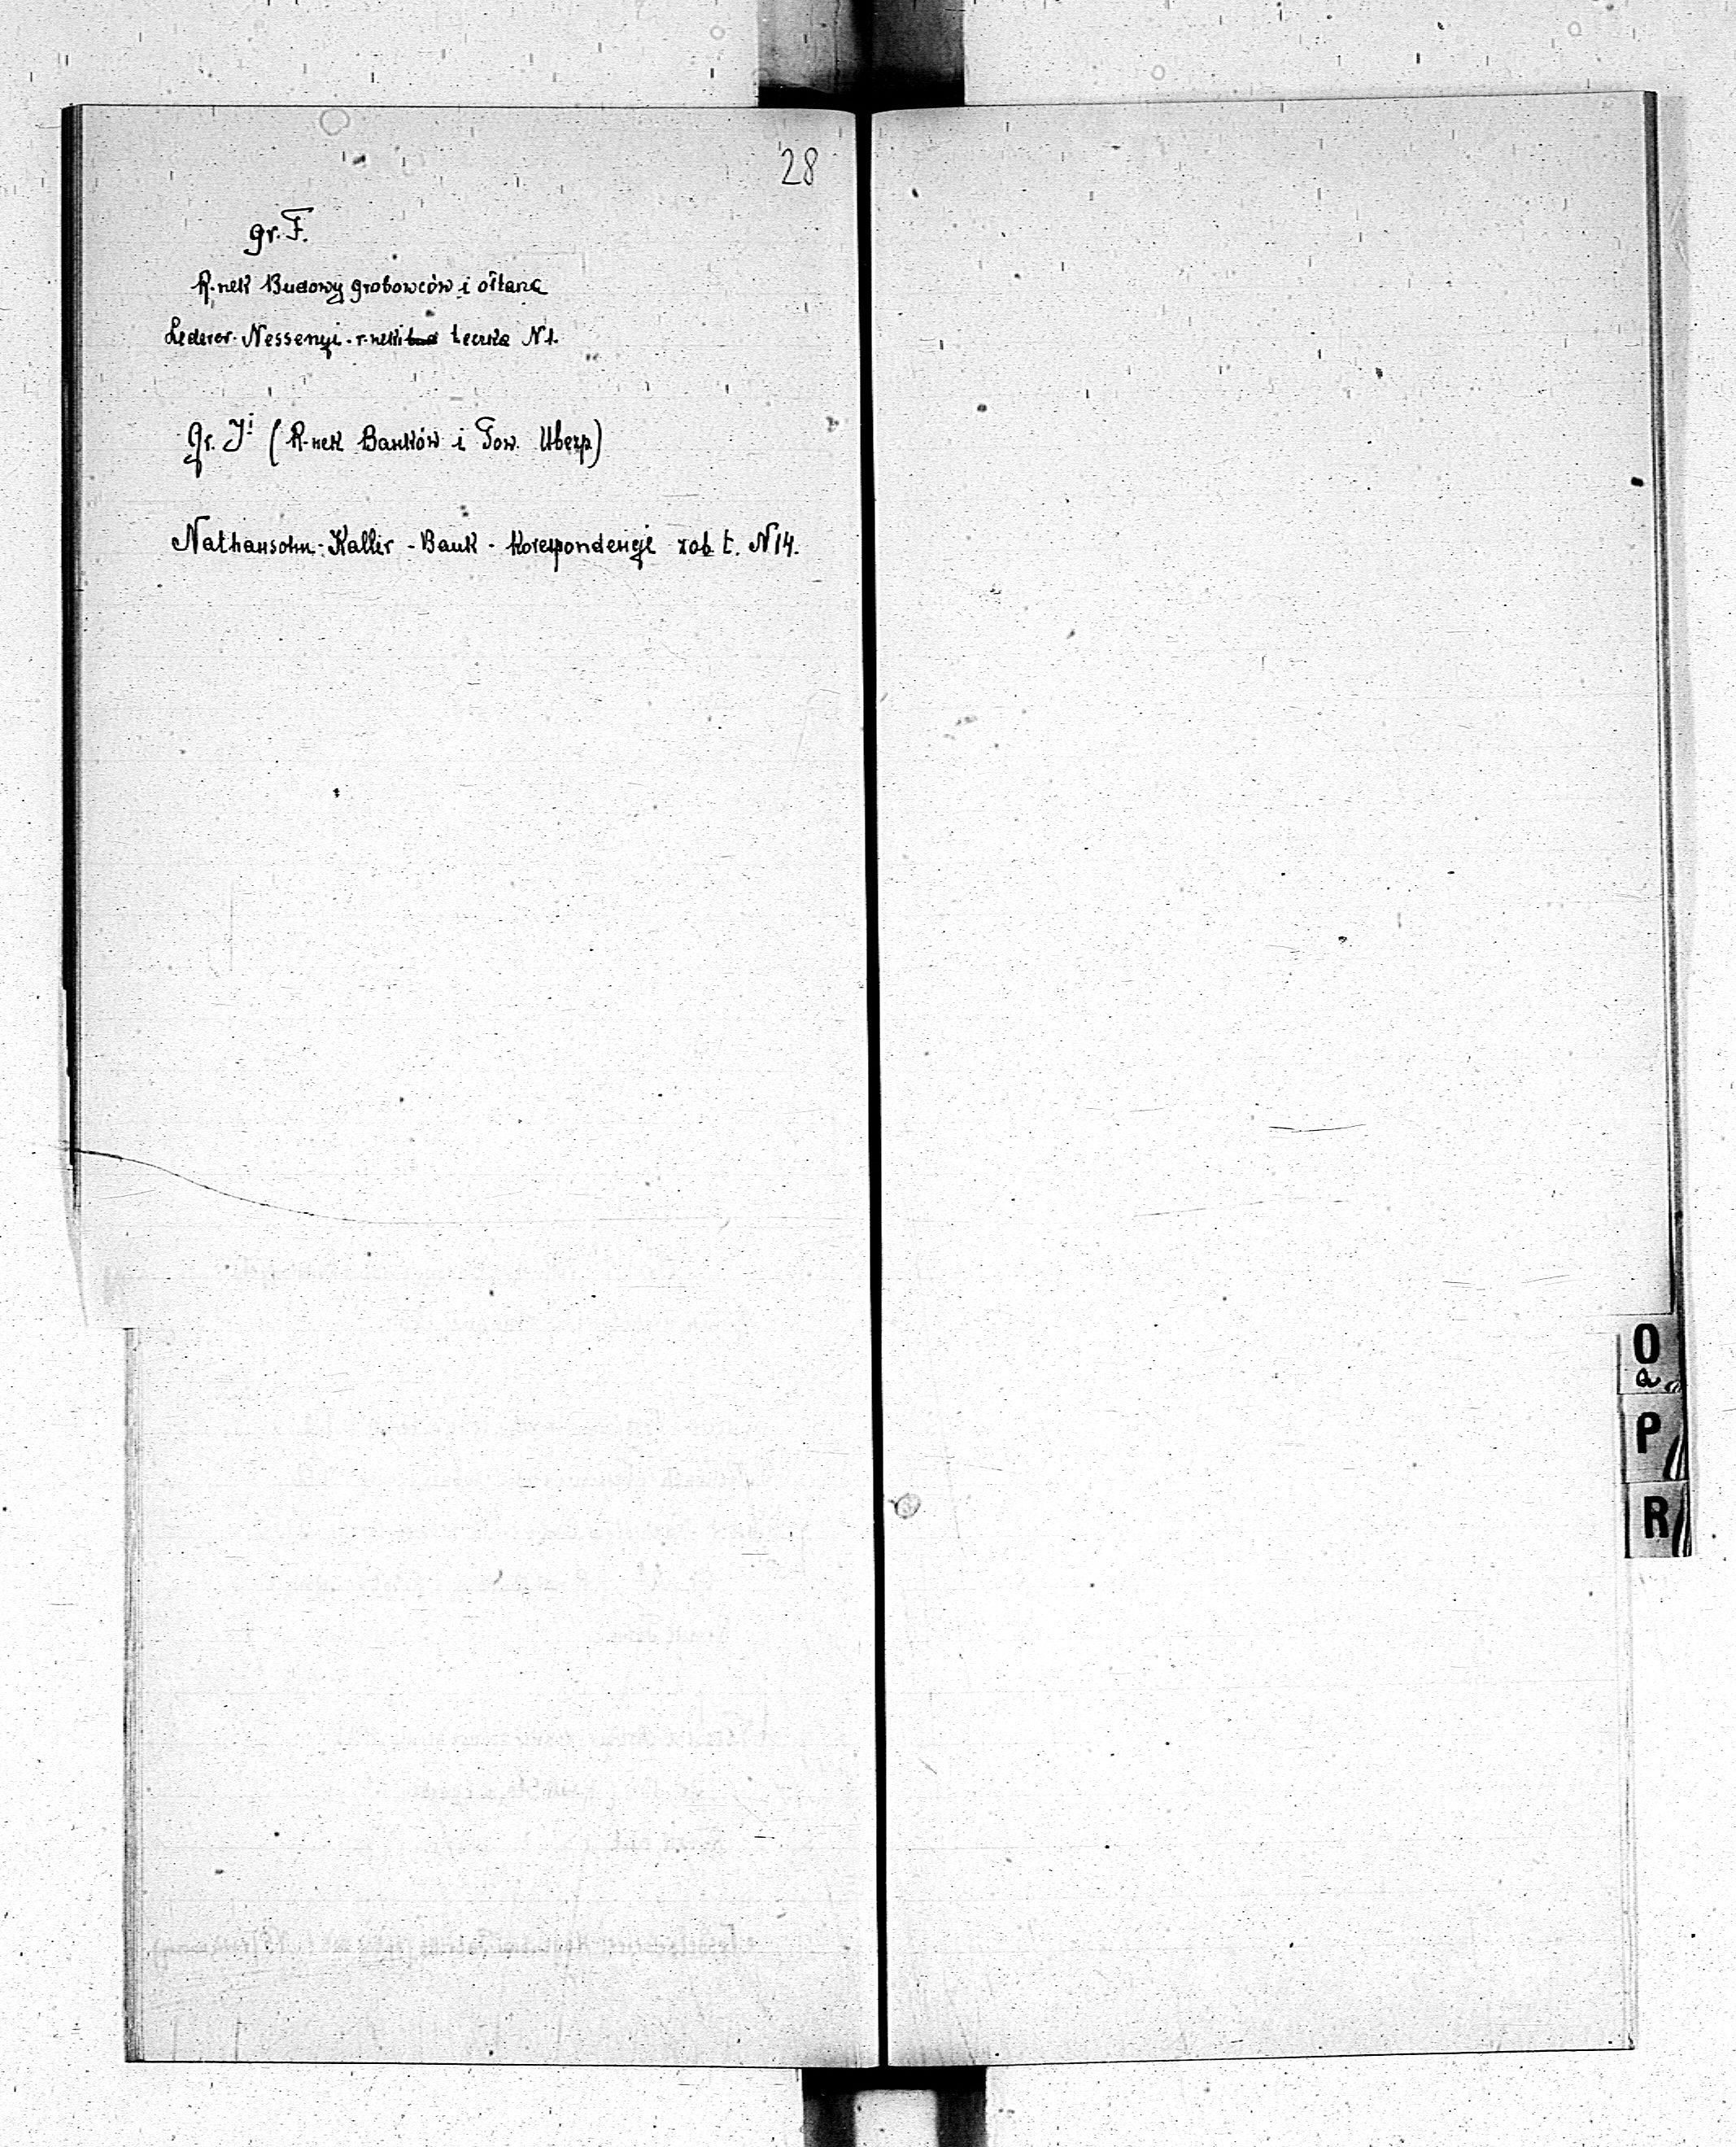 28
gr. F.
R-nek Budowy grobowców i ołtarza
Lederer-Nessenyi - r-neki teczka N 1.
gr. J¹ (R-nek Banków i Tow. Ubezp.)
Nathansohn-Kallir - Bank - Korespondencje zob t. N 14.
O
a
P
R